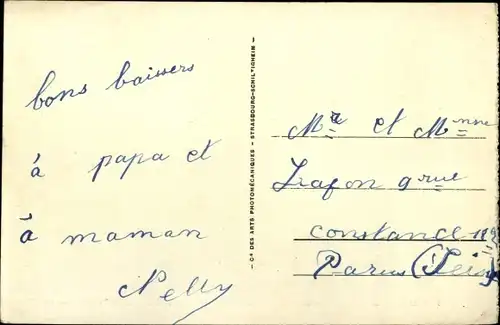 bons baisers
à papa et
à maman
Nelly
— Cie DES ARTS PHOTOMÉCANIQUES - STRASBOURG-SCHILTIGHEIM —
Mr et Mme
Lafon 9 rue
constance
Paris